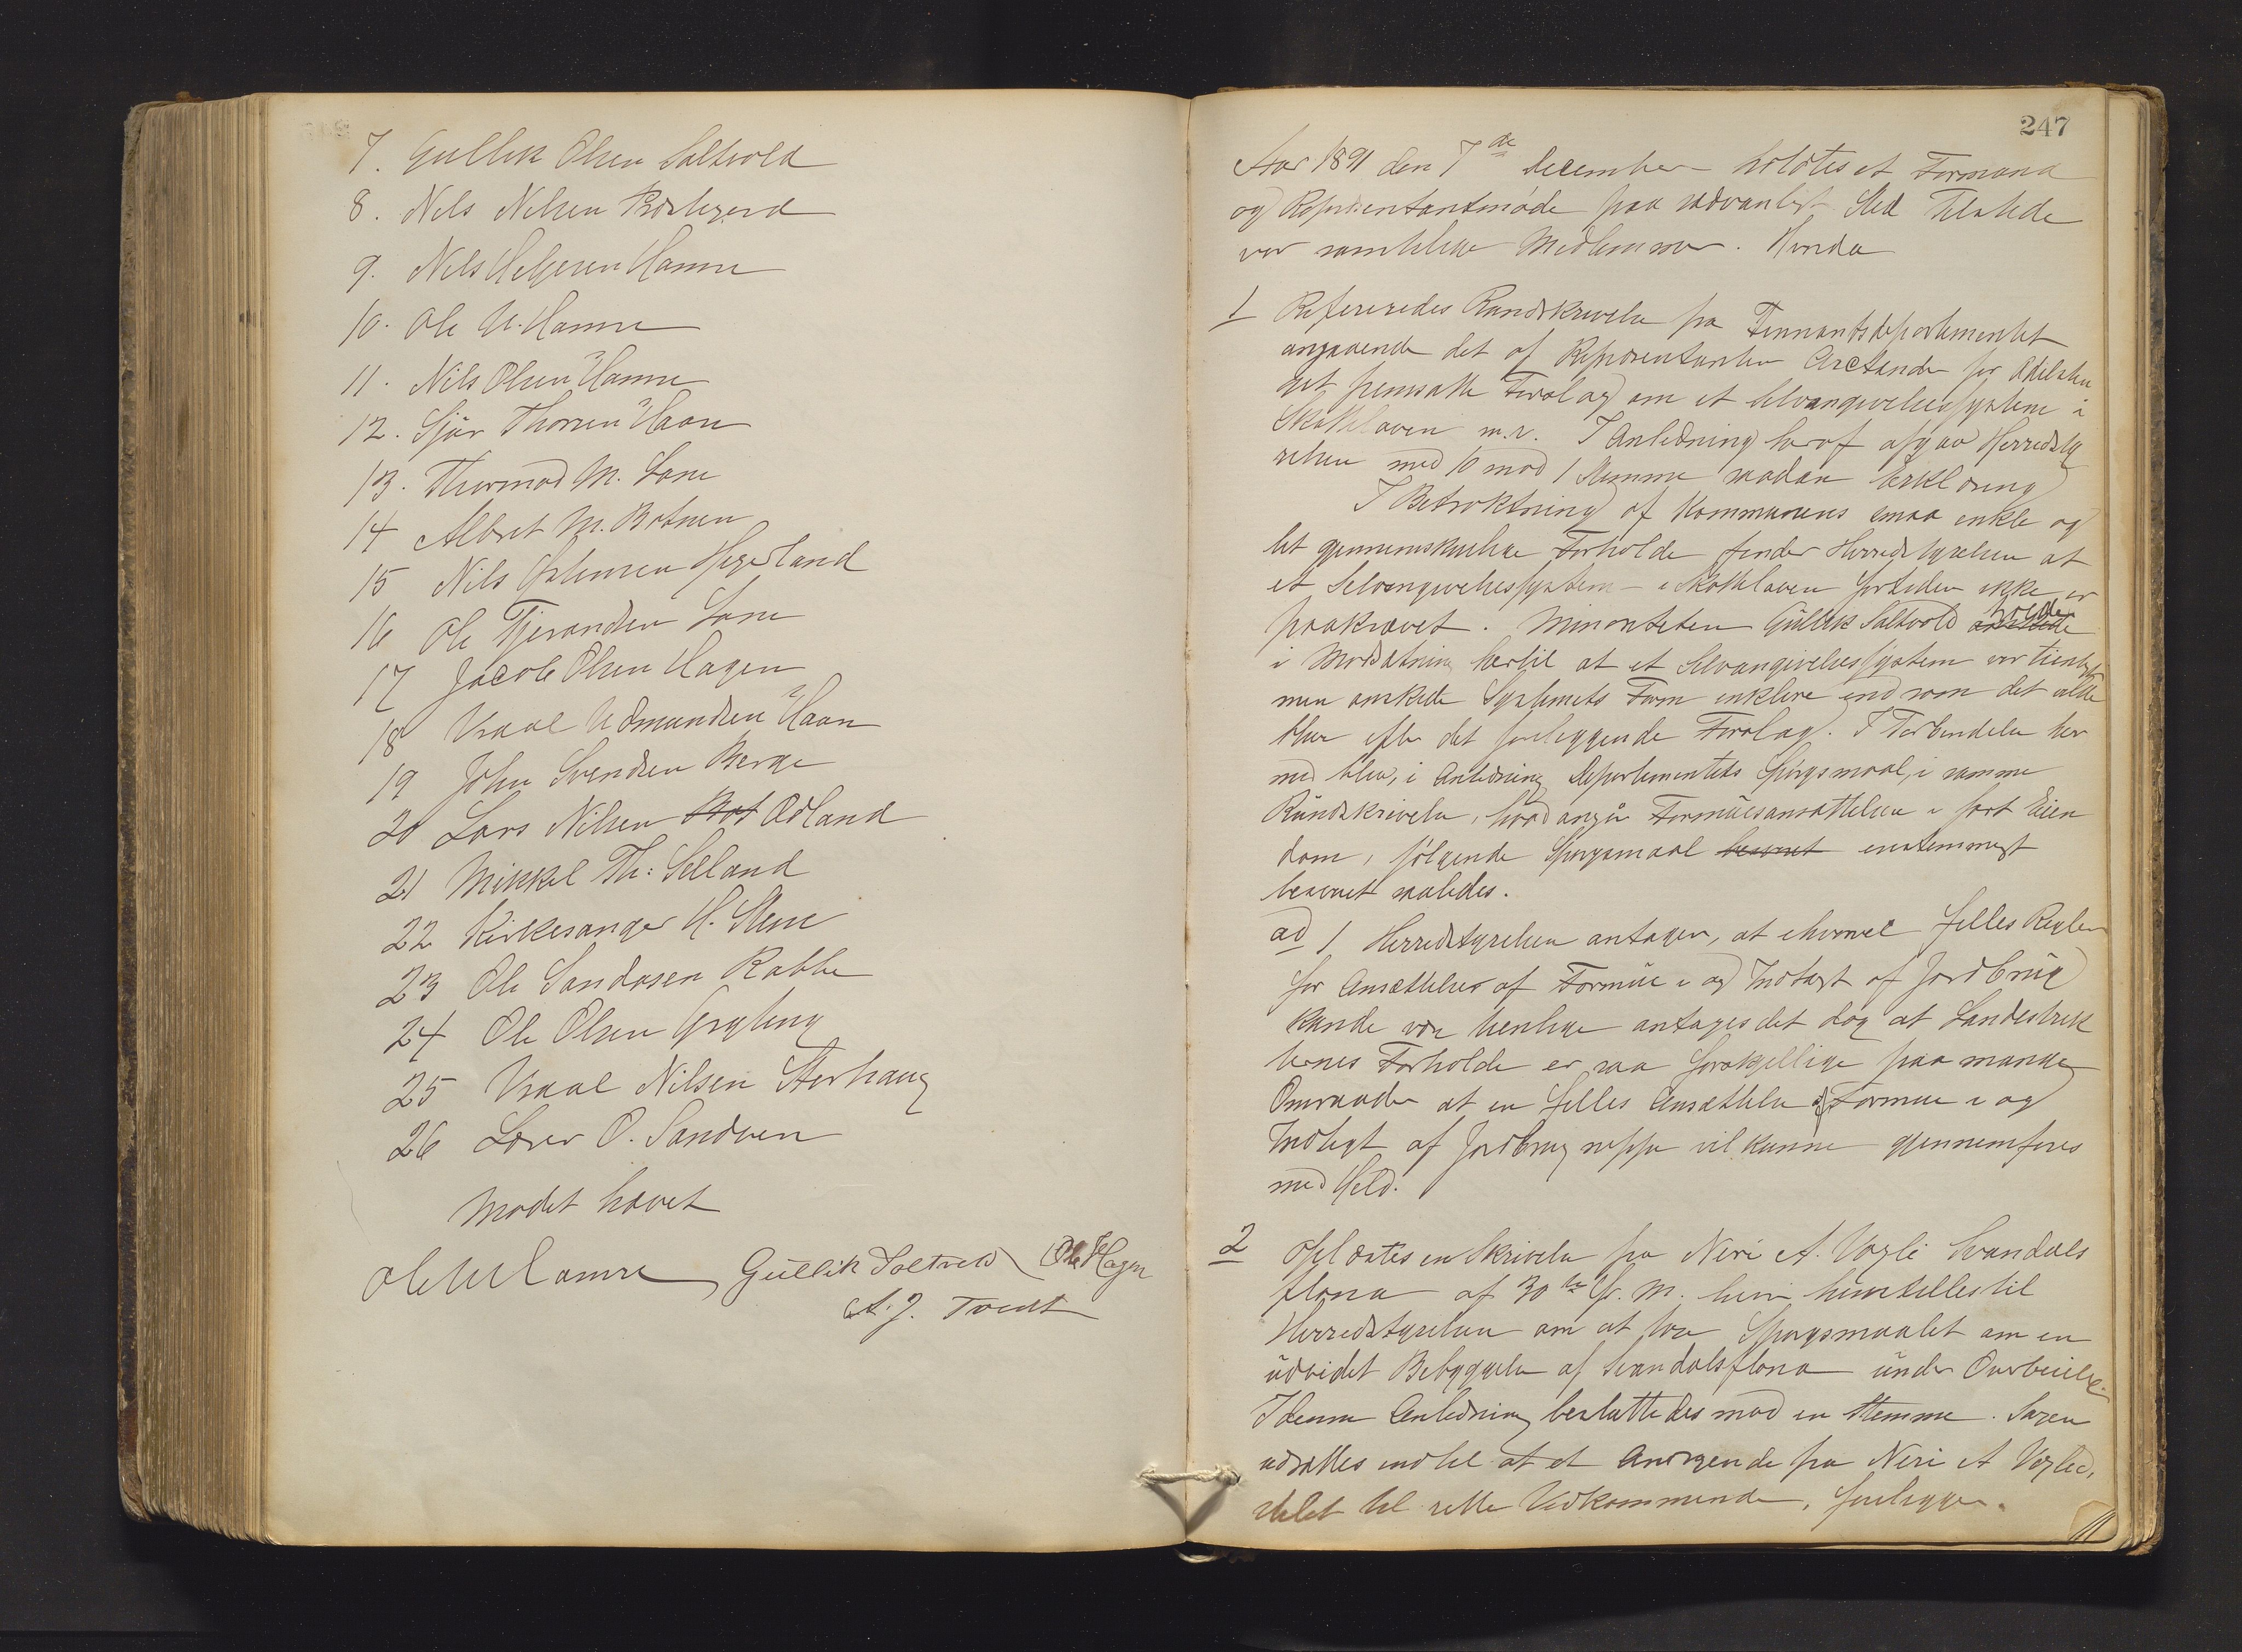 7. Gullik Olsen Saltvold
8. Nels Nelsen Præstegerd
9. Nels Helgesen Hamre
10. Ole N. Hamre
11. Nils Olsen Hamre
12. Sjur Thorsen Haan
13. Thormod M. Lone
14 Albret M. Botnen
15 Nils Hegerland
16 Ole Tjerandsen Lone
17 Jacob Olsen Hagen
18 Vraal Udmundsen Haan
19 John Svendsen Berge
20 Lars Nilsen Bot Ødland
21 Mikkel Th: Selland
22 Kirkesanger H. Stene
23 Ole Sandosen Rabbe
24 Ole Olsen Gryting
25 Vraal Nilsen Storhaug
26 Lærer O. Sandven
Mødet hævet
Ole N Hamre Gullik Saltvold Ole Hagen
A. J. Tvedt
247
Aar 1891 den 7de December holdtes et Formand
og Repræsentantmøde paa sædvanligt Sted Tilstede
var samtlige Medlemmer. Hvorda
1 Refereredes Rundskrivelse fra Finnantsdepartementet
angaaende det af Repræsentanten Arctander for Odelsthin
get fremsatte Forslag om et Selvangivelsessystem i
Skatteloven m.v. I Anledning heraf afgav Herredsty
relsen med 10 mod 1 Stemme saadan Erklæring
I Betraktning af Kommunens smaa enkle og
let gjennemskuelige Forholde finder Herredstyrelsen at
et Selvangivelsessystem i Skatteloven fortiden ikke er
paakrævet. Minoriteten Gullik Saltvold troede
i Modsætning hertil at et Selvangivelsessystem var tienligt
men ønskede Systemets Form enklere end som det vilde
blive efter det foreliggende Forslag. I Forbindelse her
med blev, i Anledning Departementets Spørgsmaal, i samme
Rundskrivelse, hvad angår Formuesansættelsen i fast Eien
dom, følgende Spørgsmaal besvaret enstemmigt
besvaret saaledes.
ad 1 Herredstyrelsen antager, at ehvorvel felles Regler
for Ansættelser af Formue i og Indtægt af Jordbrug
kunde være tienlige antages det dog at Landestrek
kenes Forholde er saa forskjellige paa mange
Omraader at en felles Ansættelse af Formue i og
Indtægt af Jordbrug neppe vil kunne gjennemføres
med Held.
2 Oplæstes en Skrivelse fra Neri A. Vagle Svandals
flona af 30te f. M. hvori henstilles til
Herredstyrelsen om at tage Spørgsmaalet om en
udvidet Bebyggelse af Svandalsflona under Overveielse.
I denne Anledning besluttedes mod en Stemme. Sagen
udsættes indtil at et Andragende fra Neri A Vagle,
stilet til rette Vedkommende, foreligger.